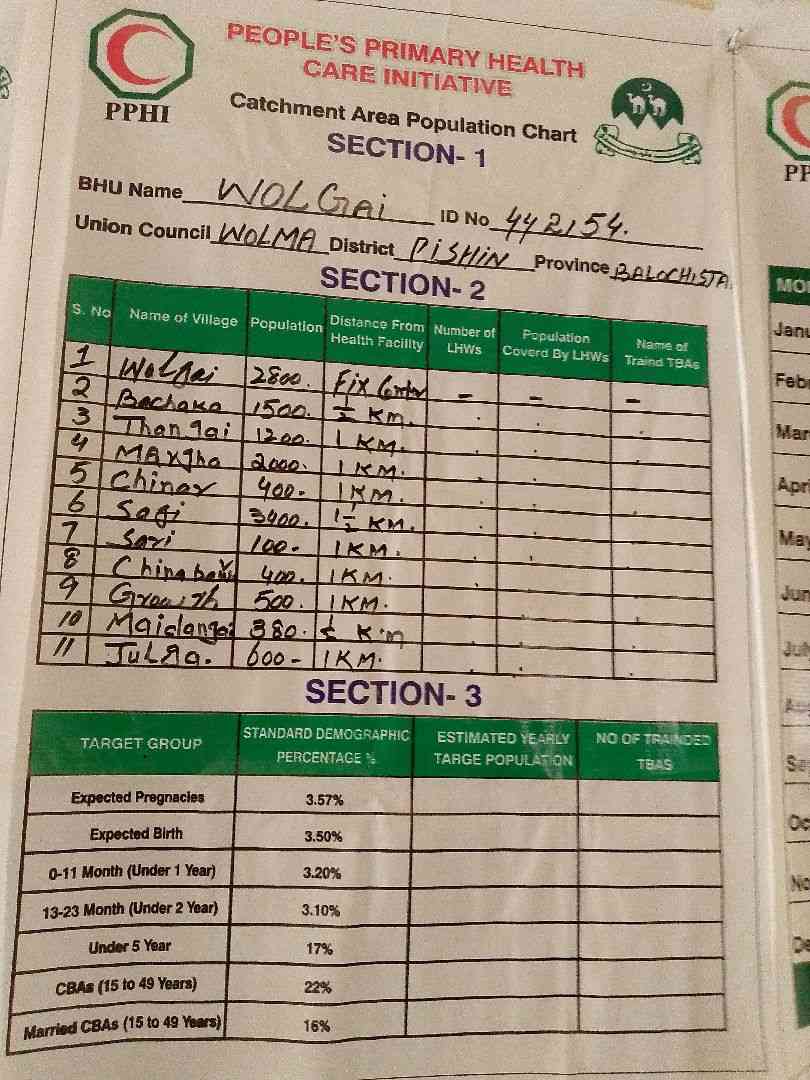 PEOPLE'S PRIMARY HEALTH
CARE INITIATIVE
PPHI
Catchment Area Population Chart
SECTION- 1
BHU Name WOLGAi ID No 442154.
Union Council WOLMA District PISHIN Province BALOCHISTA
SECTION- 2
S. No Name of Village Population Distance From Health Facility Number of LHWs Population Coverd By LHWs Name of Traind TBAs
1 Wolgai 2800. Fix Center - - -
2 Bachaka 1500. ½ KM.
3 Thangai 1200. 1 KM.
4 2000. 1 KM.
5 Chinar 400- 1 KM.
6 Sagi 3400. 1½ KM.
7 Sari 100- 1 KM.
8 400. 1 KM.
9 500. 1 KM.
10 Maidangai 380. ½ K.m
11 600- 1 KM.
SECTION- 3
TARGET GROUP STANDARD DEMOGRAPHIC PERCENTAGE % ESTIMATED YEARLY TARGE POPULATION NO OF TRAINDED TBAS
Expected Pregnacies 3.57%
Expected Birth 3.50%
0-11 Month (Under 1 Year) 3.20%
13-23 Month (Under 2 Year) 3.10%
Under 5 Year 17%
CBAs (15 to 49 Years) 22%
Married CBAs (15 to 49 Years) 16%
PP
MO
Janu
Febr
Mar
Apri
May
Jun
July
Aug
Se
Oc
No
De